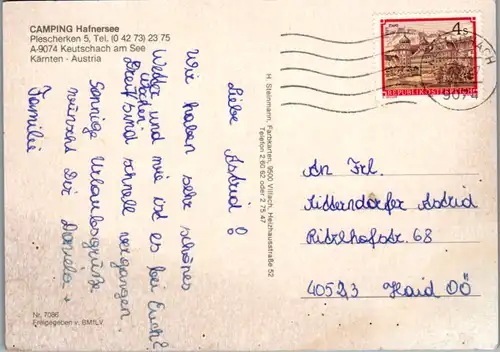 CAMPING Hafnersee
Plescherken 5, Tel. (0 42 73) 23 75
A-9074 Keutschach am See
Kärnten - Austria
Liebe Astrid!
Wir haben sehr schönes
Wetter und wie ist es bei Euch?
sind schnell vergangen.
Sonnige Urlaubsgrüße
wünscht Dir Daniela +
Familie
Nr. 7086
Freigegeben v. BMfLV
H. Steinmann, Farbkarten, 9500 Villach, Heizhausstraße 52
Telefon 2 60 62 oder 2 75 47
4 S
REPUBLIK ÖSTERREICH
9074
An Frl.
Ritterndorfer Astrid
Ritzlhofstr. 68
4053 Haid OÖ